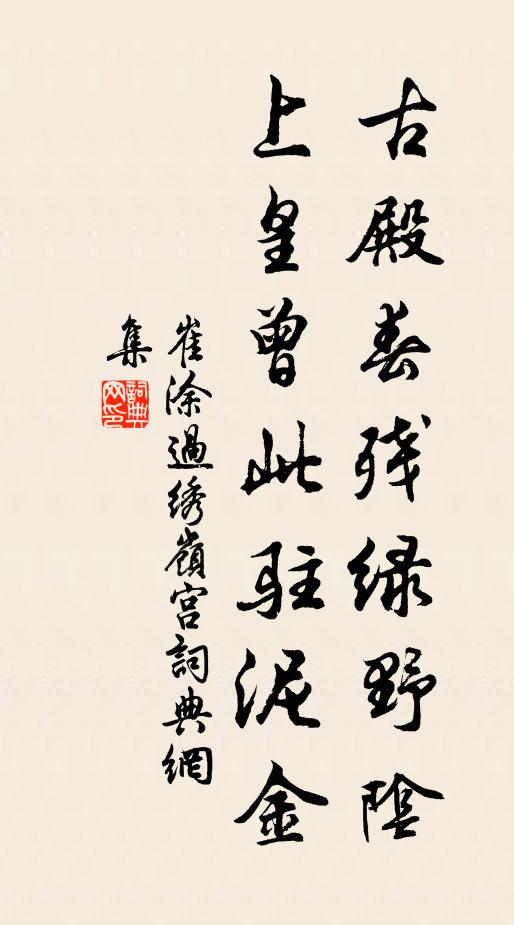 古殿春残绿野陰
上皇曾此驻泥金
崔涂過绣嶺宫詞典網
集
詞典
网印